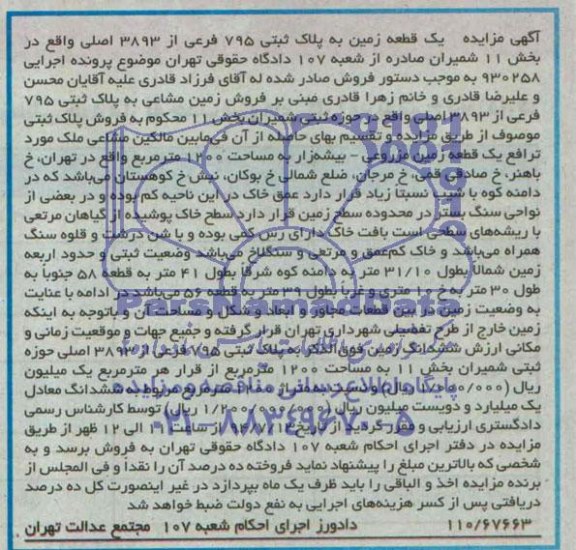 آگهی مزایده یک قطعه زمین به پلاک ثبتی ۷۹۵ فرعی از ۳۸۹۳ اصلی واقع در
بخش ۱۱ شمیران صادره از شعبه ۱۰۷ دادگاه حقوقی تهران موضوع پرونده اجرایی
۹۳۰۲۵۸ به موجب دستور فروش صادر شده له آقای فرزاد قادری علیه آقایان محسن
و علیرضا قادری و خانم زهرا قادری مبنی بر فروش زمین مشاعی به پلاک ثبتی ۷۹۵
فرعی از ۳۸۹۳ اصلی واقع در حوزه ثبتی شمیران بخش ۱۱ محکوم به فروش پلاک ثبتی
موصوف از طریق مزایده و تقسیم بهای حاصله از آن فی‌مابین مالکین مشاعی ملک مورد
ترافع یک قطعه زمین مزروعی - بیشه‌زار به مساحت ۱۲۰۰ مترمربع واقع در تهران، خ
باهنر، خ صادقی قمی، خ مرجان، ضلع شمالی خ بوکان، نبش خ کوهستان می‌باشد که در
دامنه کوه با شیب نسبتاً زیاد قرار دارد عمق خاک در این ناحیه کم بوده و در بعضی از
نواحی سنگ بستر در محدوده سطح زمین قرار دارد سطح خاک پوشیده از گیاهان مرتعی
با ریشه‌های سطحی است بافت خاک دارای رس کمی بوده و با شن درشت و قلوه سنگ
همراه می‌باشد و خاک کم‌عمق و مرتعی و سنگلاخ می‌باشد وضعیت ثبتی و حدود اربعه
زمین شمالاً بطول ۳۱/۱۰ متر به دامنه کوه شرقاً بطول ۴۱ متر به قطعه ۵۸ جنوباً به
طول ۳۰ متر به خ ۱۰ متری و غرباً بطول ۳۹ متر به قطعه ۵۶ می‌باشد در ادامه با عنایت
به وضعیت زمین در بین قطعات مجاور و ابعاد و شکل و مساحت آن و باتوجه به اینکه
زمین خارج از طرح تفصیلی شهرداری تهران قرار گرفته و جمیع جهات و موقعیت زمانی و
مکانی ارزش ششدانگ زمین فوق‌الذکر به پلاک ثبتی ۷۹۵ فرعی از ۳۸۹۳ اصلی حوزه
ثبتی شمیران بخش ۱۱ به مساحت ۱۲۰۰ مترمربع از قرار هر مترمربع یک میلیون
ریال مترمربع مربوط به ششدانگ معادل
یک میلیارد و دویست میلیون ریال توسط کارشناس رسمی
دادگستری ارزیابی و مقرر گردید از تاریخ از ساعت ۱۰ الی ۱۲ ظهر از طریق
مزایده در دفتر اجرای احکام شعبه ۱۰۷ دادگاه حقوقی تهران به فروش برسد و به
شخصی که بالاترین مبلغ را پیشنهاد نماید فروخته ده درصد آن را نقداً و فی المجلس از
برنده مزایده اخذ و الباقی را باید ظرف یک ماه بپردازد در غیر اینصورت کل ده درصد
دریافتی پس از کسر هزینه‌های اجرایی به نفع دولت ضبط خواهد شد
۱۱۰/۶۷۶۶۳ دادورز اجرای احکام شعبه ۱۰۷ مجتمع عدالت تهران
ParsNamadData
پایگاه اطلاع رسانی مناقصه و مزایده
۰۲۱-۸۸۳۴۹۶۷۰